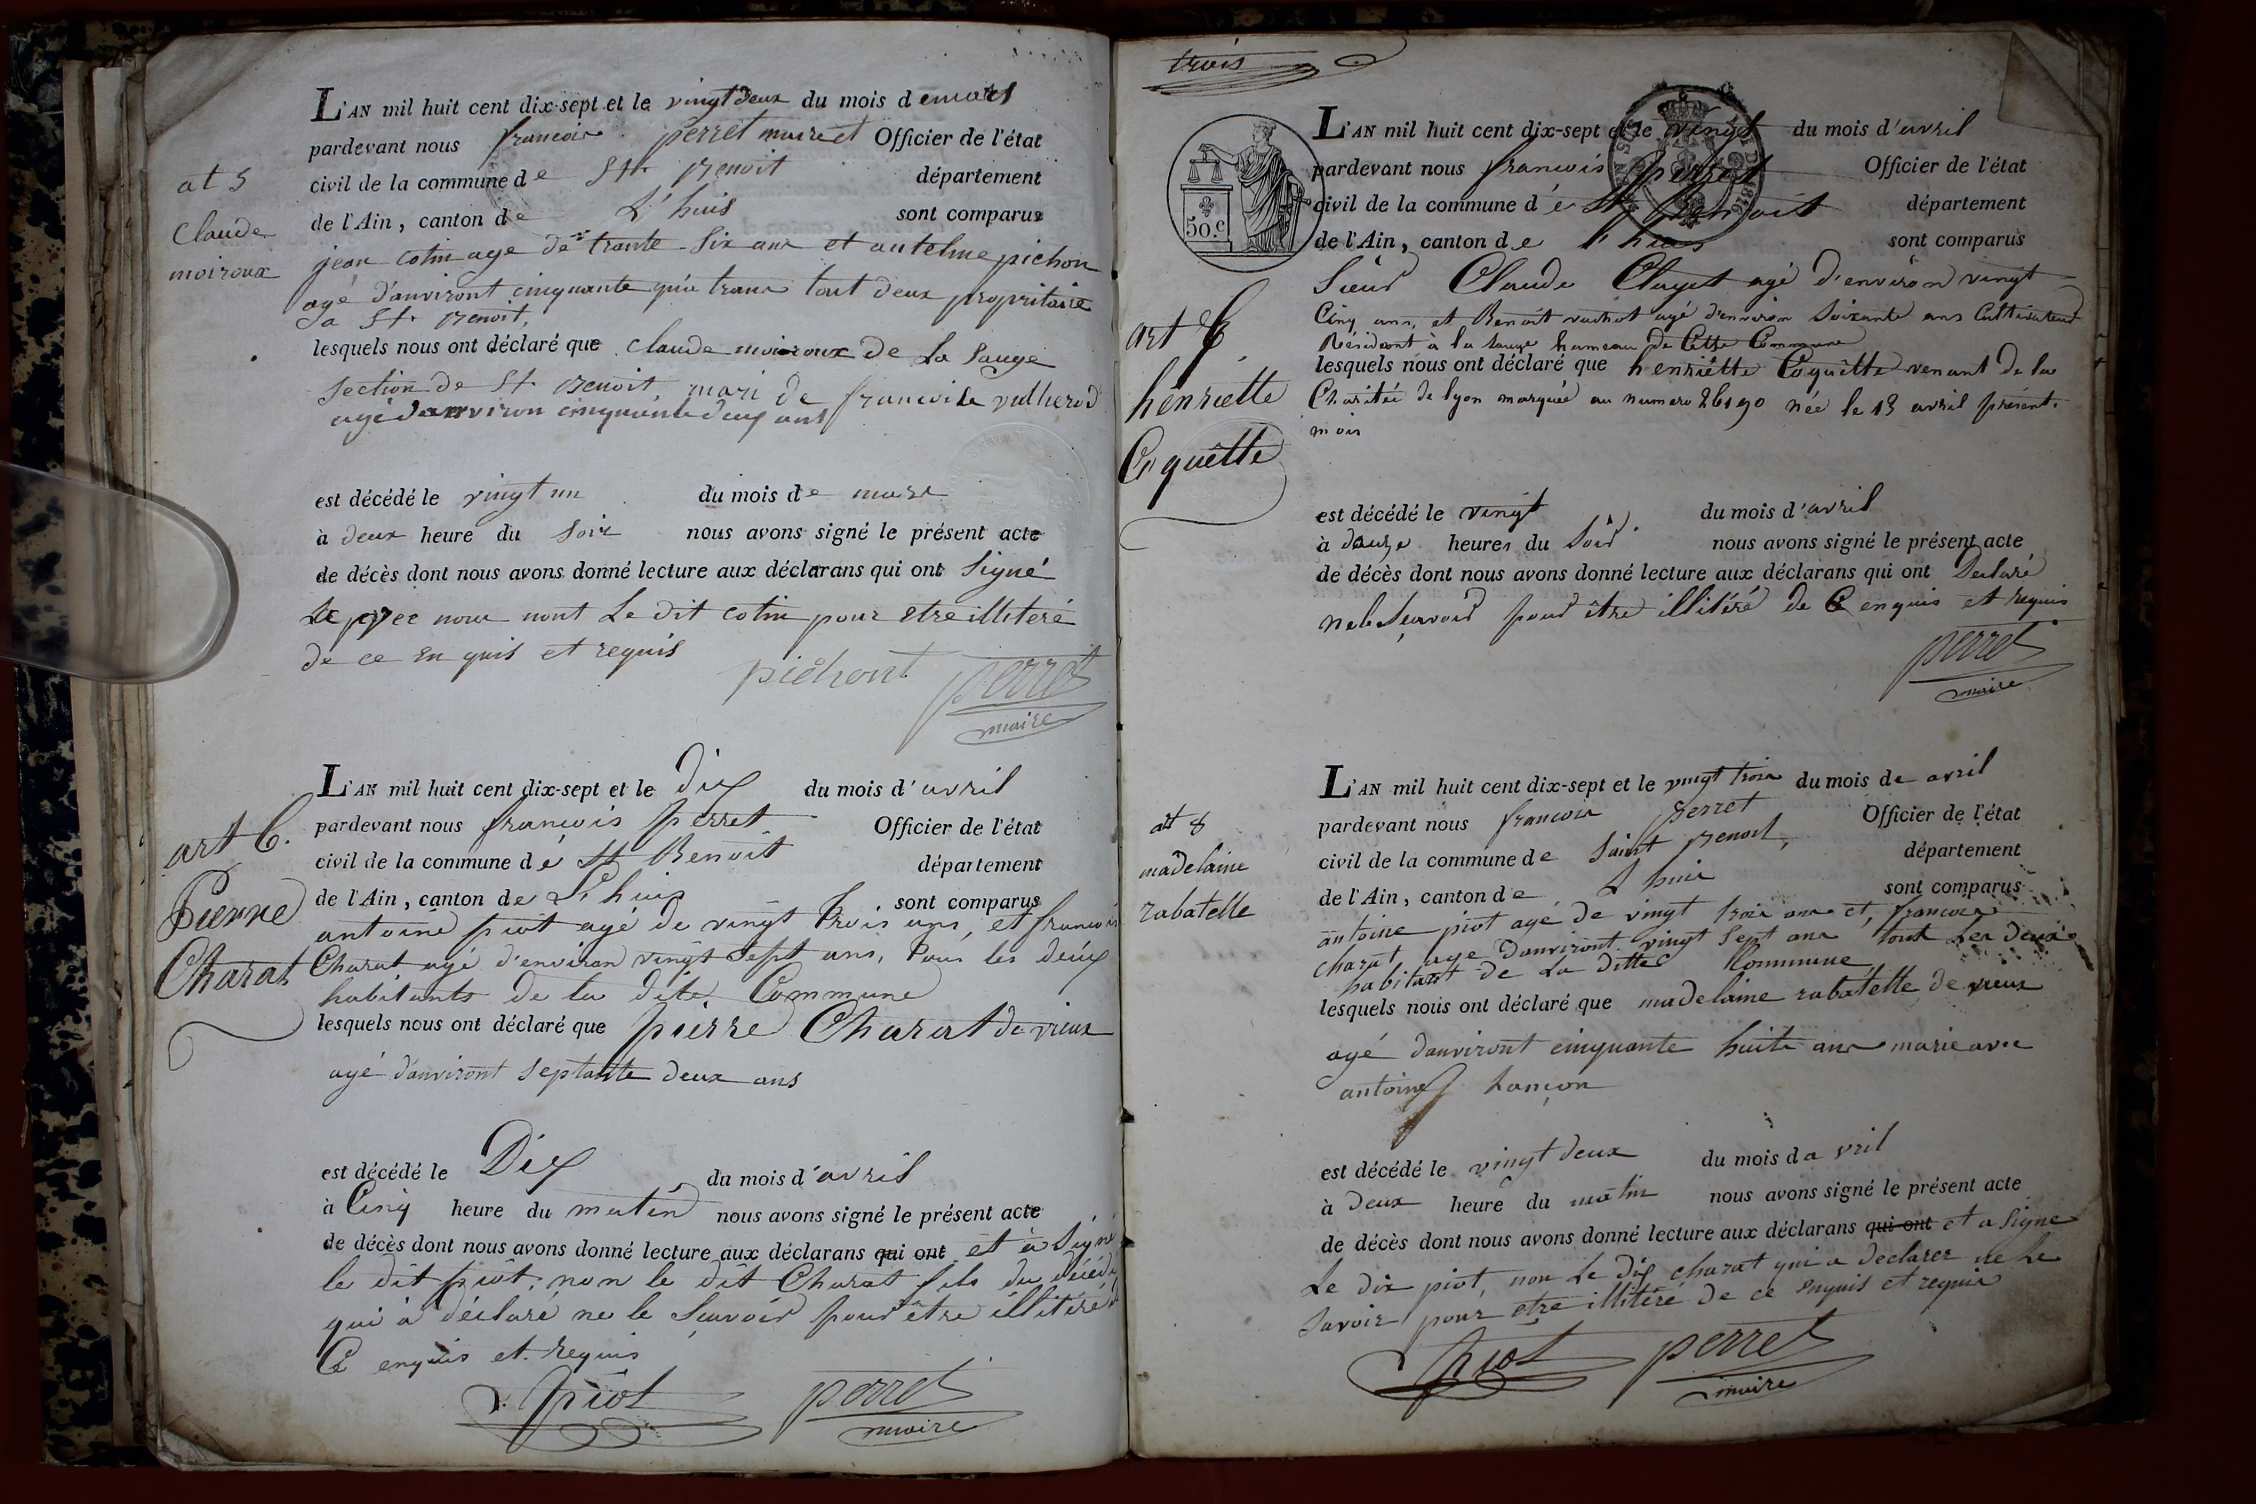 at 5
Claude
moiroux
L'AN mil huit cent dix-sept et le vingt deux du mois de mars
pardevant nous francois perret maire et Officier de l'état
civil de la commune de St. Benoit département
de l'Ain, canton de L'huis sont comparus
jean cotin age de trante six ans et antelme pichon
agé d'anviront cinquante quatrans tout deux propritaire
a St. Benoit,
lesquels nous ont déclaré que Claude moiroux de La Sauge
section de St. Benoit, mari de francoise vulherod
agé danviron cinquante deux ans
est décédé le vingt un du mois de mars
à deux heure du soir nous avons signé le présent acte
de décès dont nous avons donné lecture aux déclarans qui ont Signé
avec nous nont Le dit cotin pour etre illiteré
de ce en quis et requis
pichont perret
maire
art 6.
Pierre
Charat
L'AN mil huit cent dix-sept et le dix du mois d'avril
pardevant nous francois perret Officier de l'état
civil de la commune dé St Benoit département
de l'Ain, canton de L'huis sont comparus
antoine piot agé de vingt trois ans, et francois
Charat agé d'environ vingt sept ans, tous les deux
habitants de la dite Commune
lesquels nous ont déclaré que pierre Charat de vieux
agé danviront septante deux ans
est décédé le Dix du mois d'avril
à Cinq heure du matin nous avons signé le présent acte
de décès dont nous avons donné lecture aux déclarans qui ont et à signé
le dit piot; non le dit Charat fils du décédé
qui à déclaré ne le scavoir pour être illitéré de
Ce enquis et requis
piot perret
maire
trois
50.c
art 7
henriette
Coquette
L'AN mil huit cent dix-sept et le vingt du mois d'avril
pardevant nous francois perret Officier de l'état
civil de la commune dé St Benoit département
de l'Ain, canton de l'huis sont comparus
Sieur Claude Clayet agé d'environ vingt
Cinq ans, et Benoit vachot agé d'environ soixante ans Cultivateur
Résident à la sauge hameau de Cette Commune
lesquels nous ont déclaré que henriette Coquette venant de la
Charitée de lyon marquée au numero 26190 née le 13 avril présent
mois
est décédé le vingt du mois d'avril
à douze heures du Soir nous avons signé le présent acte
de décès dont nous avons donné lecture aux déclarans qui ont Declaré
ne le Scavoir pour être illitéré de Ce enquis et requis
perret
maire
art 8
madelaine
rabatelle
L'AN mil huit cent dix-sept et le vingt trois du mois de avril
pardevant nous francois perret Officier de l'état
civil de la commune de saint Benoit, département
de l'Ain, canton de L'huis sont comparus
antoine piot agé de vingt trois ans et, francois
charat age danviront vingt sept ans tout les deux
habitant de La ditte Commune
lesquels nous ont déclaré que madelaine rabatelle de vieux
agé danviront cinquante huite ans marie avec
antoine Lançon
est décédé le vingt deux du mois da vril
à deux heure du matin nous avons signé le présent acte
de décès dont nous avons donné lecture aux déclarans qui ont et a Signe
Le dix piot, non Le dix charat qui a declarer ne Le
savoir pour etre illitéré de ce enquis et requis
piot perret
maire